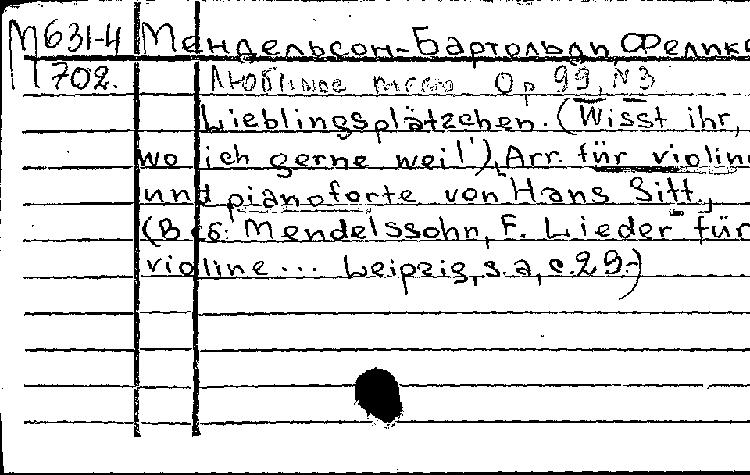 М631-4 Мендельсон-Бартольди Феликс
702. Любимое место Op 99, N3
Lieblingsplätzchen. (Wisst ihr,
wo ich gerne weil'), Arr. für violine
und pianoforte von Hans Sitt.,
(В сб: Mendelssohn, F. Lieder für
violine... Leipzig, s.a, c.29-)